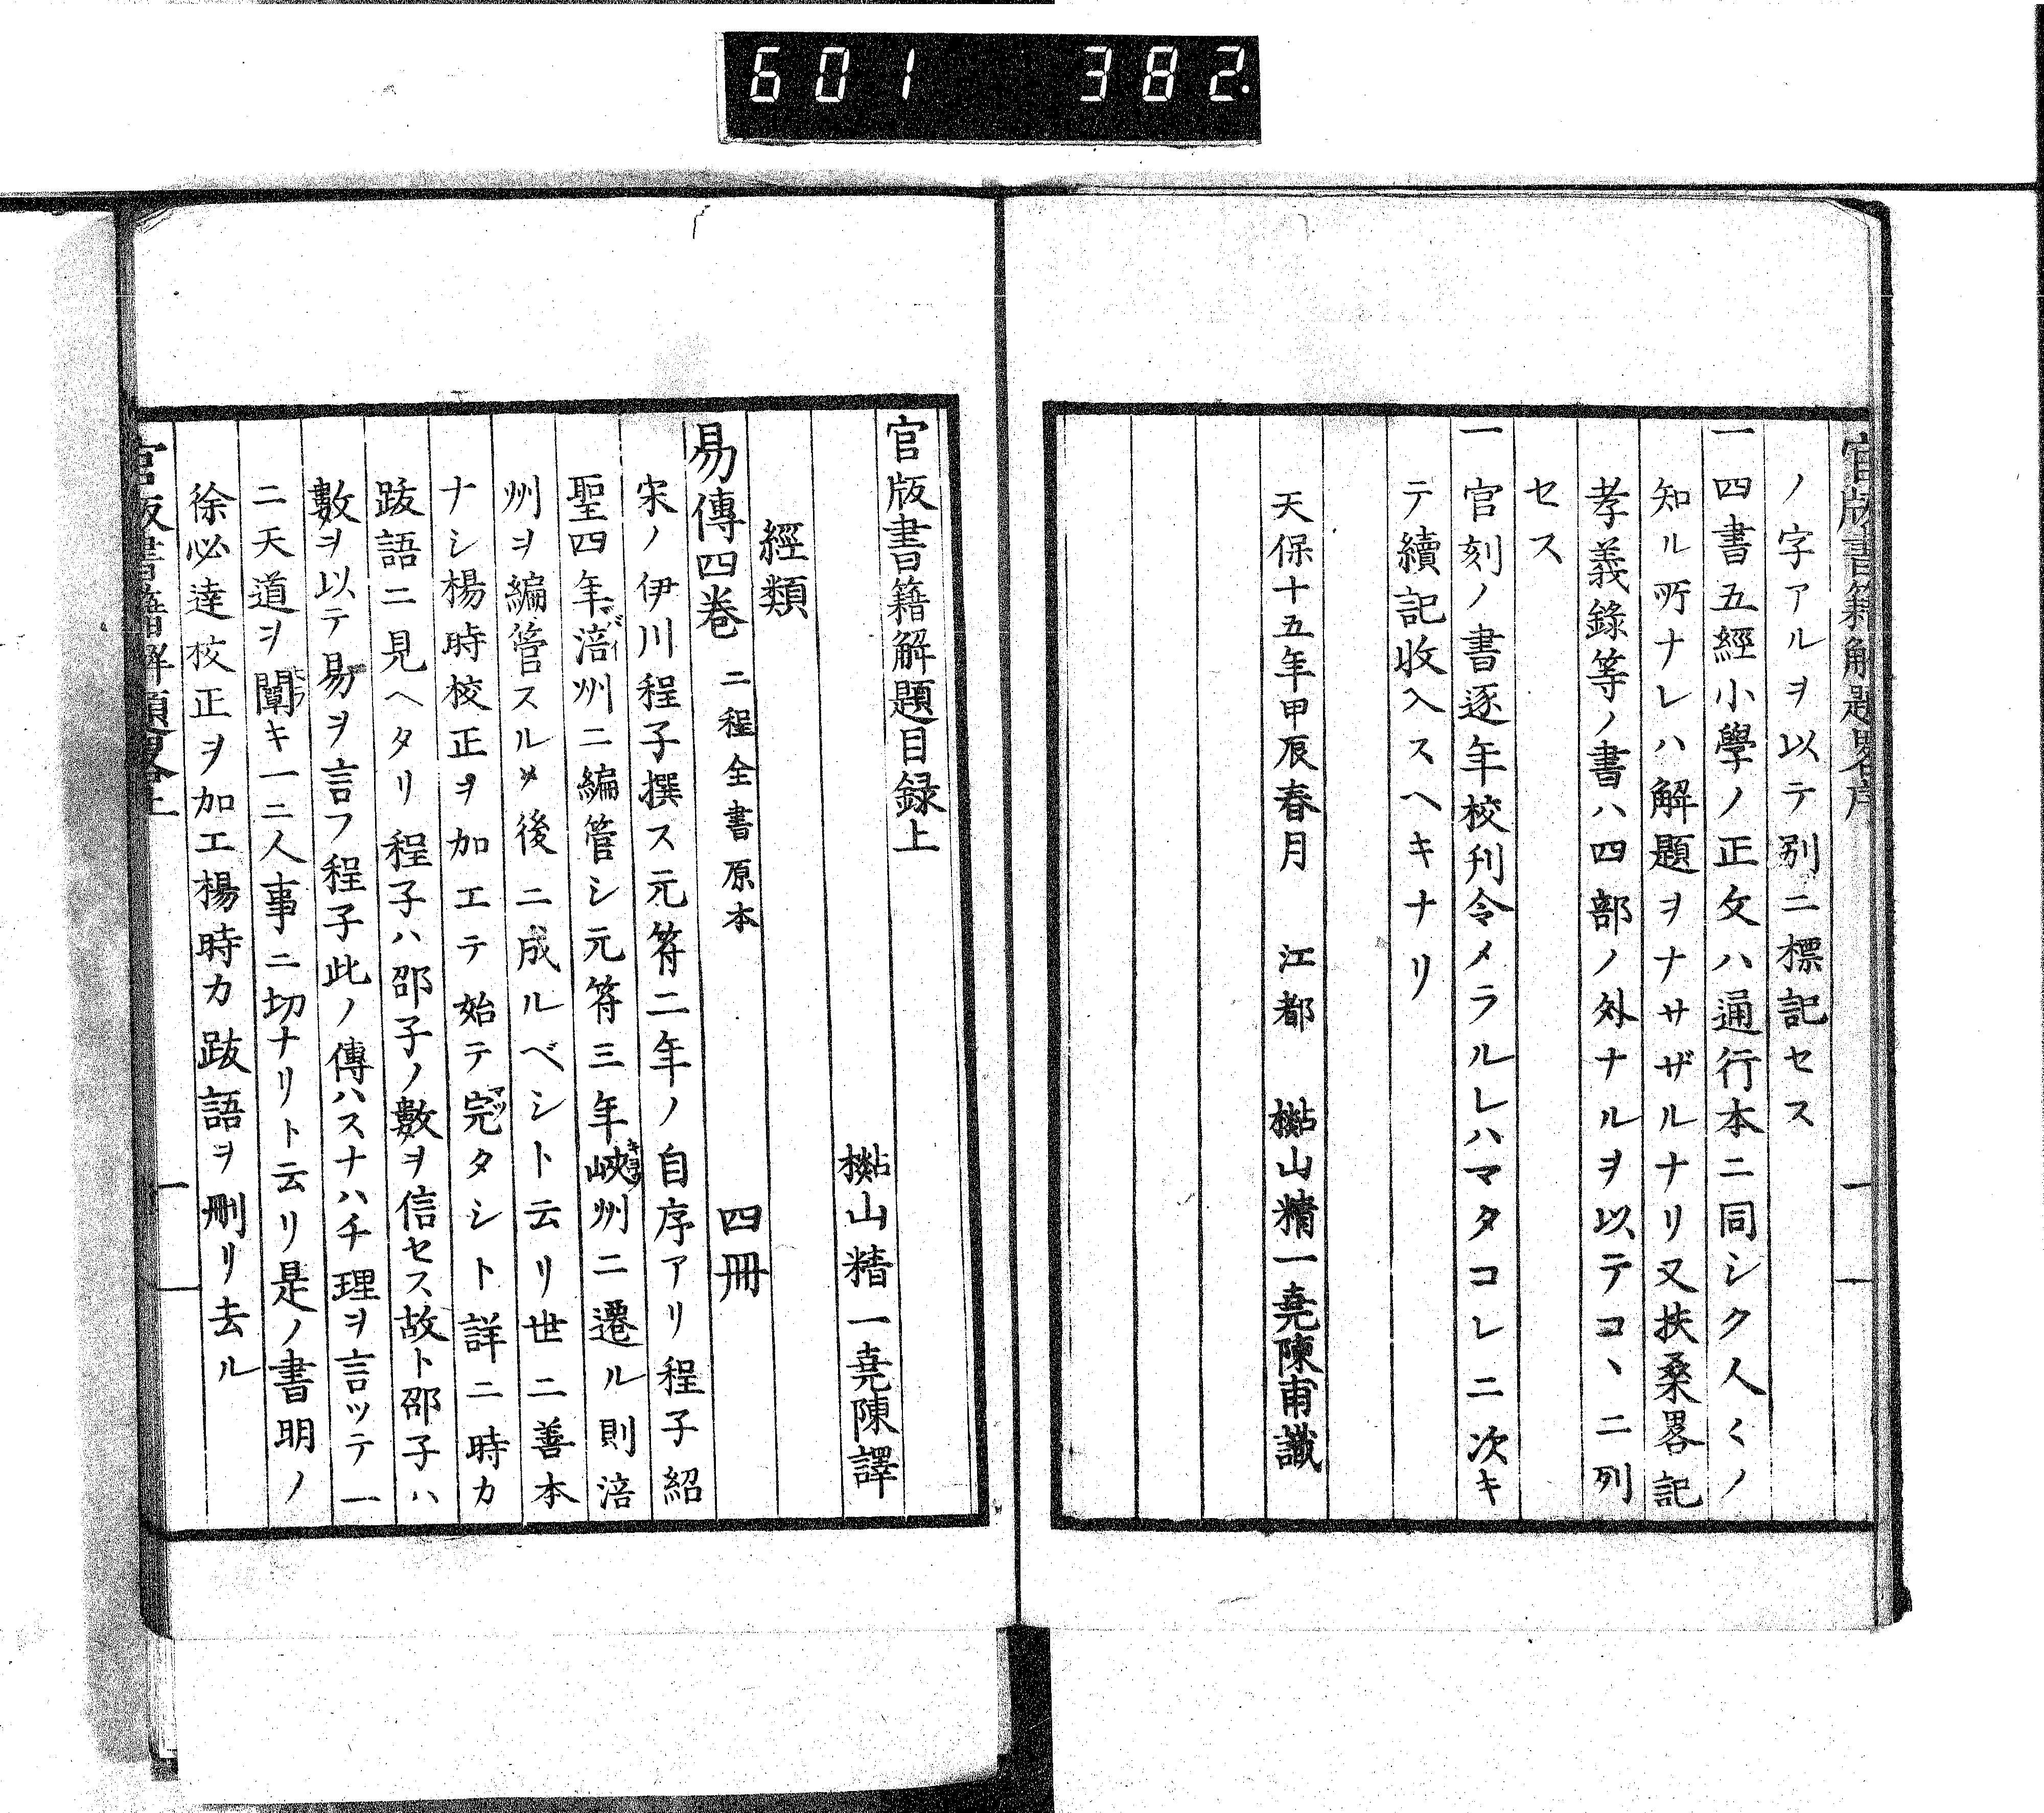 601 382.
官版書籍解題畧序
ノ字アルヲ以テ別ニ標記セス
一四書五經小學ノ正文ハ通行本ニ同シク人〱ノ
知ル所ナレハ解題ヲナサザルナリ又扶桑畧記
孝義錄等ノ書ハ四部ノ外ナルヲ以テコヽニ列
セス
一官刻ノ書逐年校刊令メラルレハマタコレニ次キ
テ續記收入スヘキナリ
天保十五年甲辰春月 江都 㮴山精一堯陳甫識
一
官版書籍解題目録上
㮴山精一堯陳譯
經類
易傳四巻 二程全書原本 四冊
宋ノ伊川程子撰ス元符二年ノ自序アリ程子紹
聖四年涪州ニ編管シ元符三年峽州ニ遷ル則涪
州ヲ編管スルメ後ニ成ルベシト云リ世ニ善本
ナシ楊時校正ヲ加エテ始テ完タシト詳ニ時カ
跋語ニ見ヘタリ程子ハ邵子ノ數ヲ信セス故ト邵子ハ
數ヲ以テ易ヲ言フ程子此ノ傳ハスナハチ理ヲ言ッテ一
ニ天道ヲ闡キ一ニ人事ニ切ナリト云リ是ノ書明ノ
徐必達校正ヲ加エ楊時カ跋語ヲ刪リ去ル
官版書籍解題畧上
一